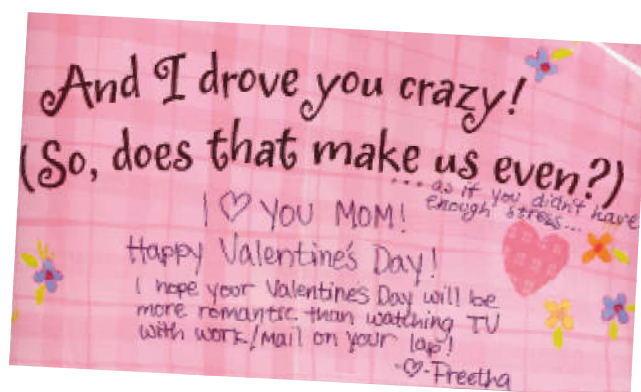 And I drove you crazy!
(So, does that make us even?)
... as if you didn't have
enough stress...
I ♡ YOU MOM!
Happy Valentine's Day!
I hope your Valentine's Day will be
more romantic than watching TV
with work/mail on your lap!
-♡-Preetha